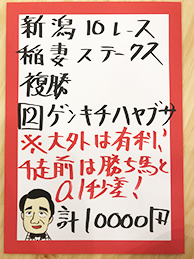 新潟10レース
稲妻ステークス
複勝
12ゲンキチハヤブサ
※大外は有利!
4走前は勝ち馬と
0.1秒差!
計10000円